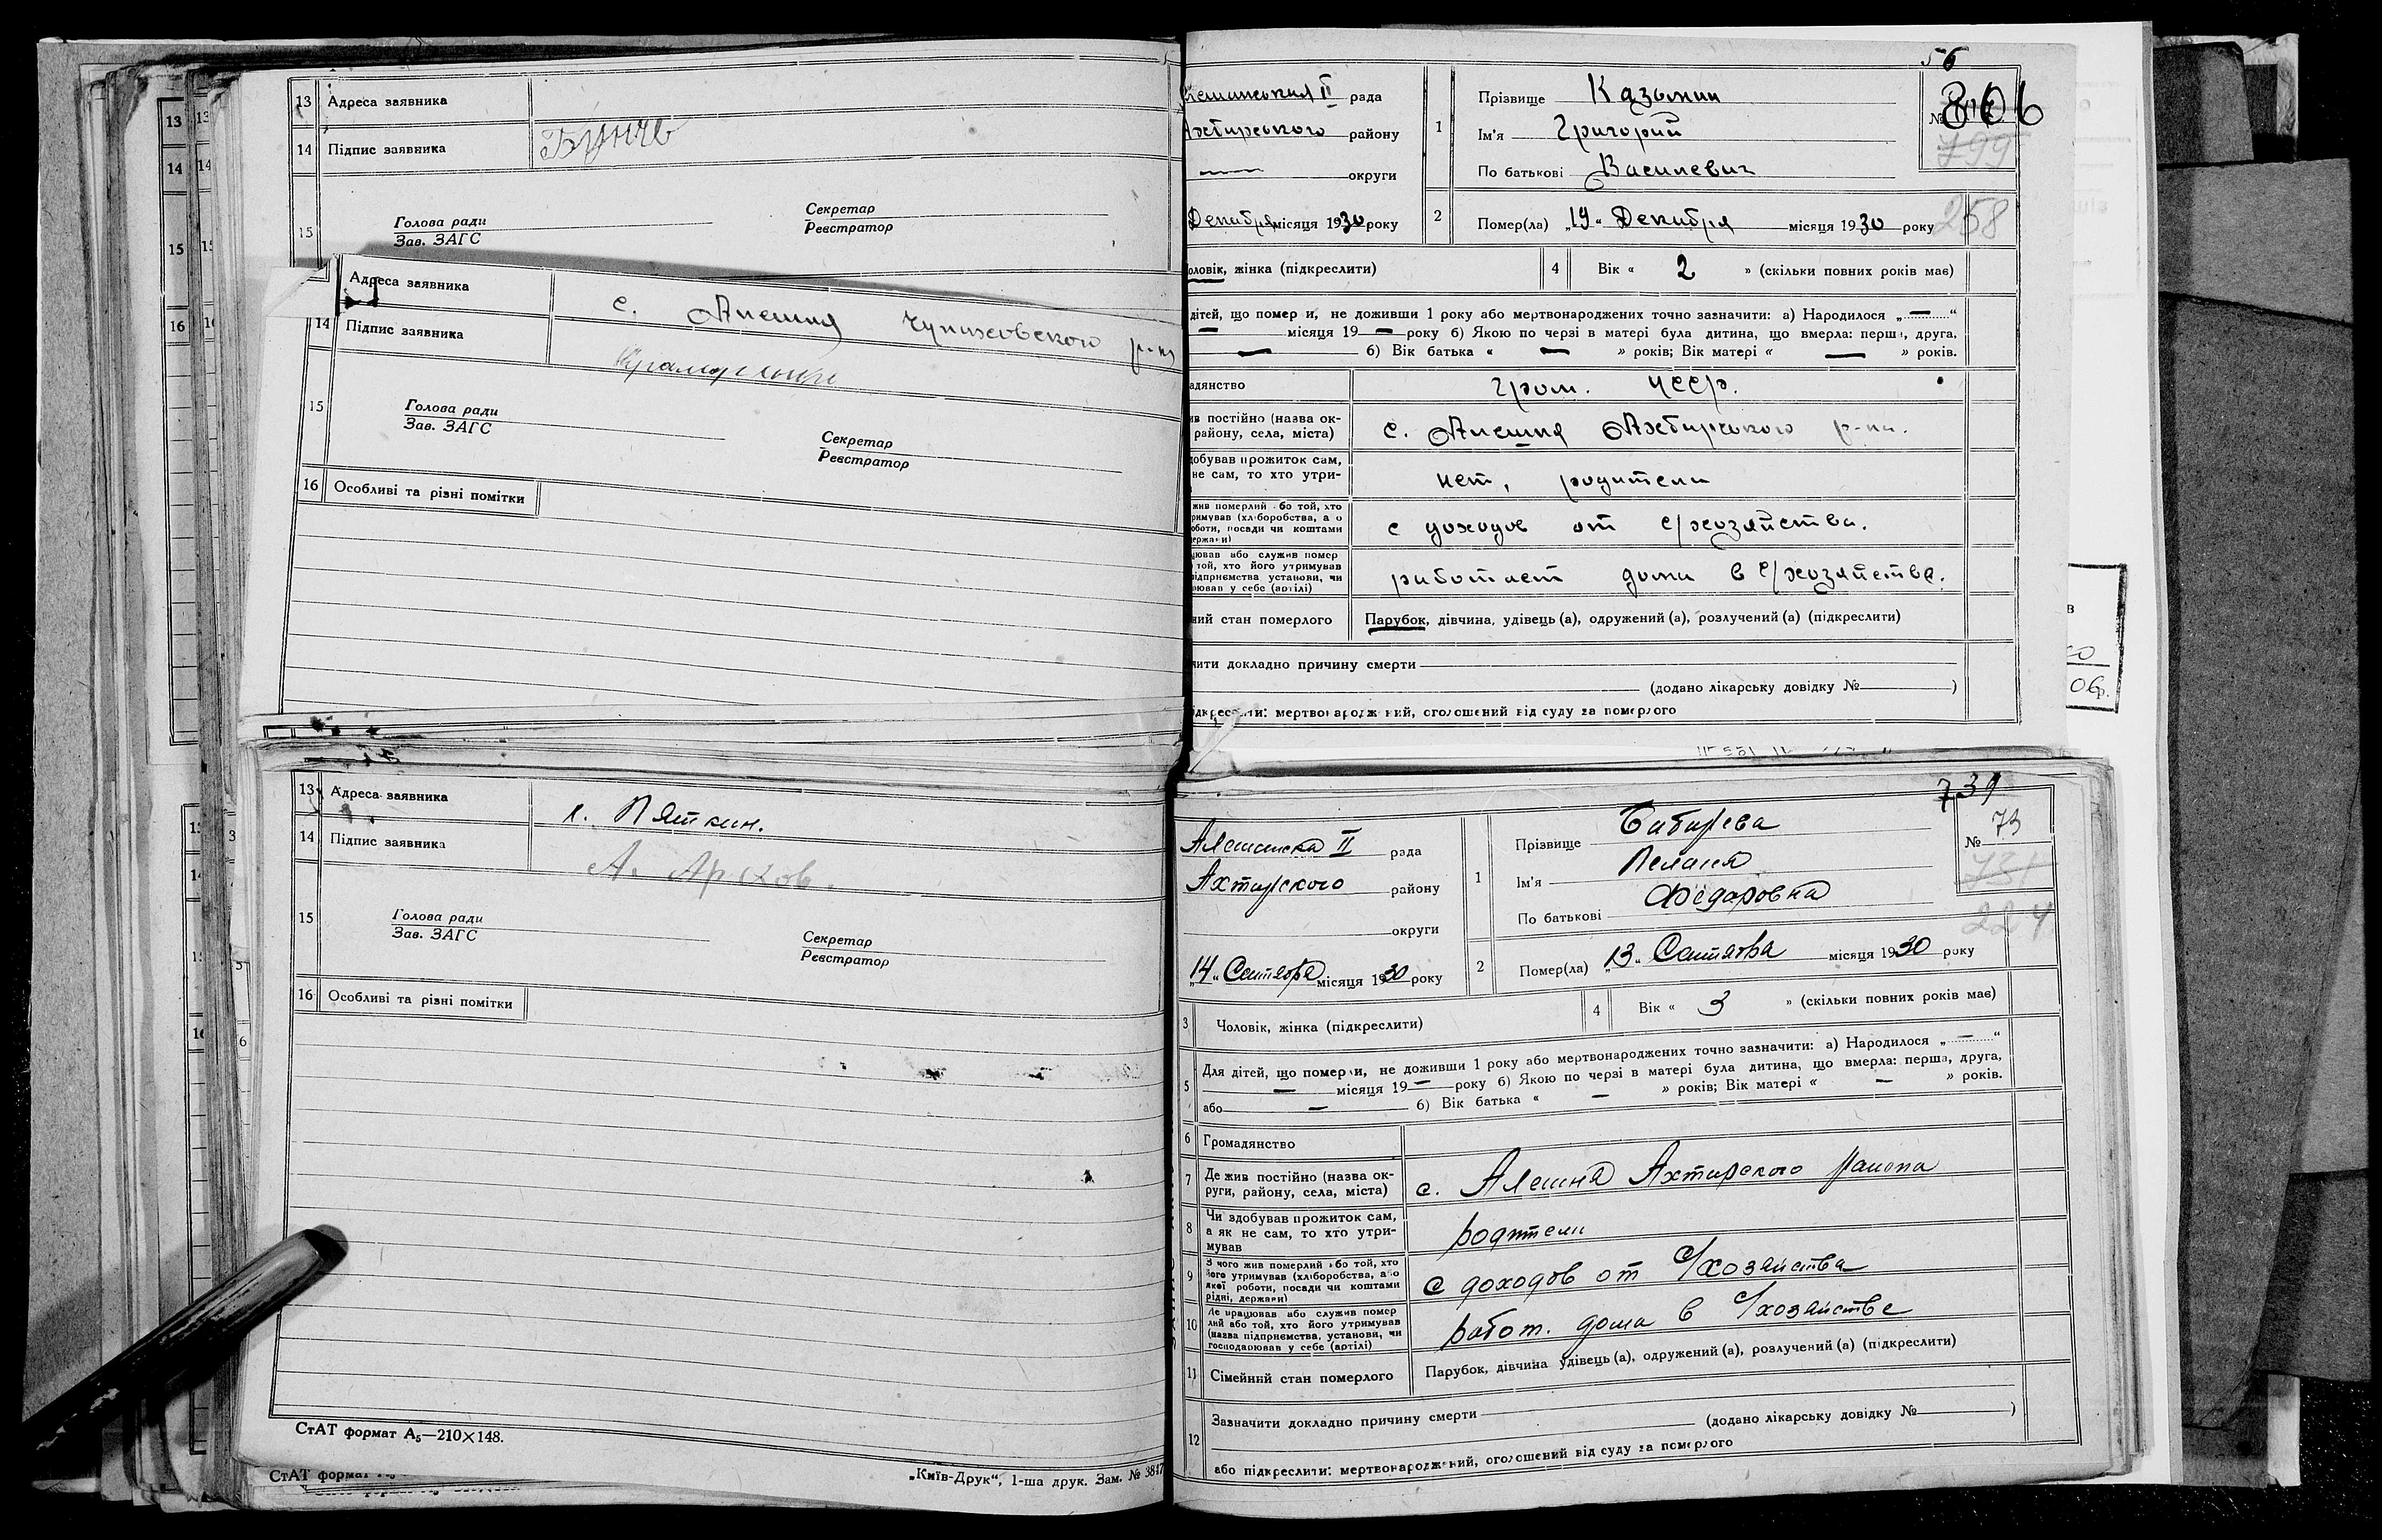 13 Адреса заявника
14 Підпис заявника
15 Голова ради
Зав. ЗАГС
Секретар
Реєстратор
Адреса заявника с. Алешня Чупаховского р-на
14 Підпис заявника
15 Голова ради
Зав. ЗАГС
Секретар
Реєстратор
16 Особливі та різні помітки
13 Адреса заявника
14 Підпис заявника
15 Голова ради
Зав. ЗАГС
Секретар
Реєстратор
16 Особливі та різні помітки
СтАТ формат А5—210×148.
„Київ-Друк“, 1-ша друк. Зам. №
56
806
799
258
II рада
Ахтирського району
округи
Декабря місяця 1930 року
1 Прізвище Казьмин
Ім'я Григорий
По батькові Василевич
2 Помер(ла) „19“ Декабря місяця 1930 року
чоловік, жінка (підкреслити)
4 Вік « 2 » (скільки повних років має)
дітей, що померли, не доживши 1 року або мертвонароджених точно зазначити: а) Народилося „—“
— місяця 19— року б) Якою по черзі в матері була дитина, що вмерла: перша, друга,
— 6) Вік батька « — » років; Вік матері « — » років.
адянство гром. УССР.
ив постійно (назва ок-
району, села, міста) с. Алешня Ахтирського р-на.
добував прожиток сам,
не сам, то хто утри- нет, родители
жив померлий або той, хто
римував (хліборобства, або
оботи, посади чи коштами
держави) с доходов от с/хозяйства.
цював або служив помер
той, хто його утримував
підприємства установи, чи
рював у себе (артілі) работает дома в с/хозяйстве.
ний стан померлого Парубок, дівчина, удівець(а), одружений(а), розлучений(а) (підкреслити)
чити докладно причину смерти
(додано лікарську довідку № )
ідкреслити: мертвонароджений, оголошений від суду за померлого
739
№ 73
731
224
Алешинска II рада
Ахтирского району
округи
„14“ Сентября місяця 1930 року
1 Прізвище Бибирева
Ім'я Пелагея
По батькові Федоровна
2 Помер(ла) „13“ Сентября місяця 1930 року
3 Чоловік, жінка (підкреслити)
4 Вік « 3 » (скільки повних років має)
5 Для дітей, що померли, не доживши 1 року або мертвонароджених точно зазначити: а) Народилося „—“
— місяця 19— року б) Якою по черзі в матері була дитина, що вмерла: перша, друга,
або — 6) Вік батька « — » років; Вік матері « — » років.
6 Громадянство
7 Де жив постійно (назва ок-
руги, району, села, міста) с. Алешня Ахтирского района
8 Чи здобував прожиток сам,
а як не сам, то хто утри-
мував родители
9 З чого жив померлий або той, хто
його утримував (хліборобства, або
якої роботи, посади чи коштами
рідні, держави) с доходов от с/хозяйства
10 Де працював або служив помер
лий або той, хто його утримував
(назва підприємства, установи, чи
господарював у себе (артілі) работ. дома в с/хозяйстве
11 Сімейний стан померлого Парубок, дівчина удівець(а), одружений(а), розлучений(а) (підкреслити)
12 Зазначити докладно причину смерти
(додано лікарську довідку № )
або підкреслити: мертвонароджений, оголошений від суду за померлого